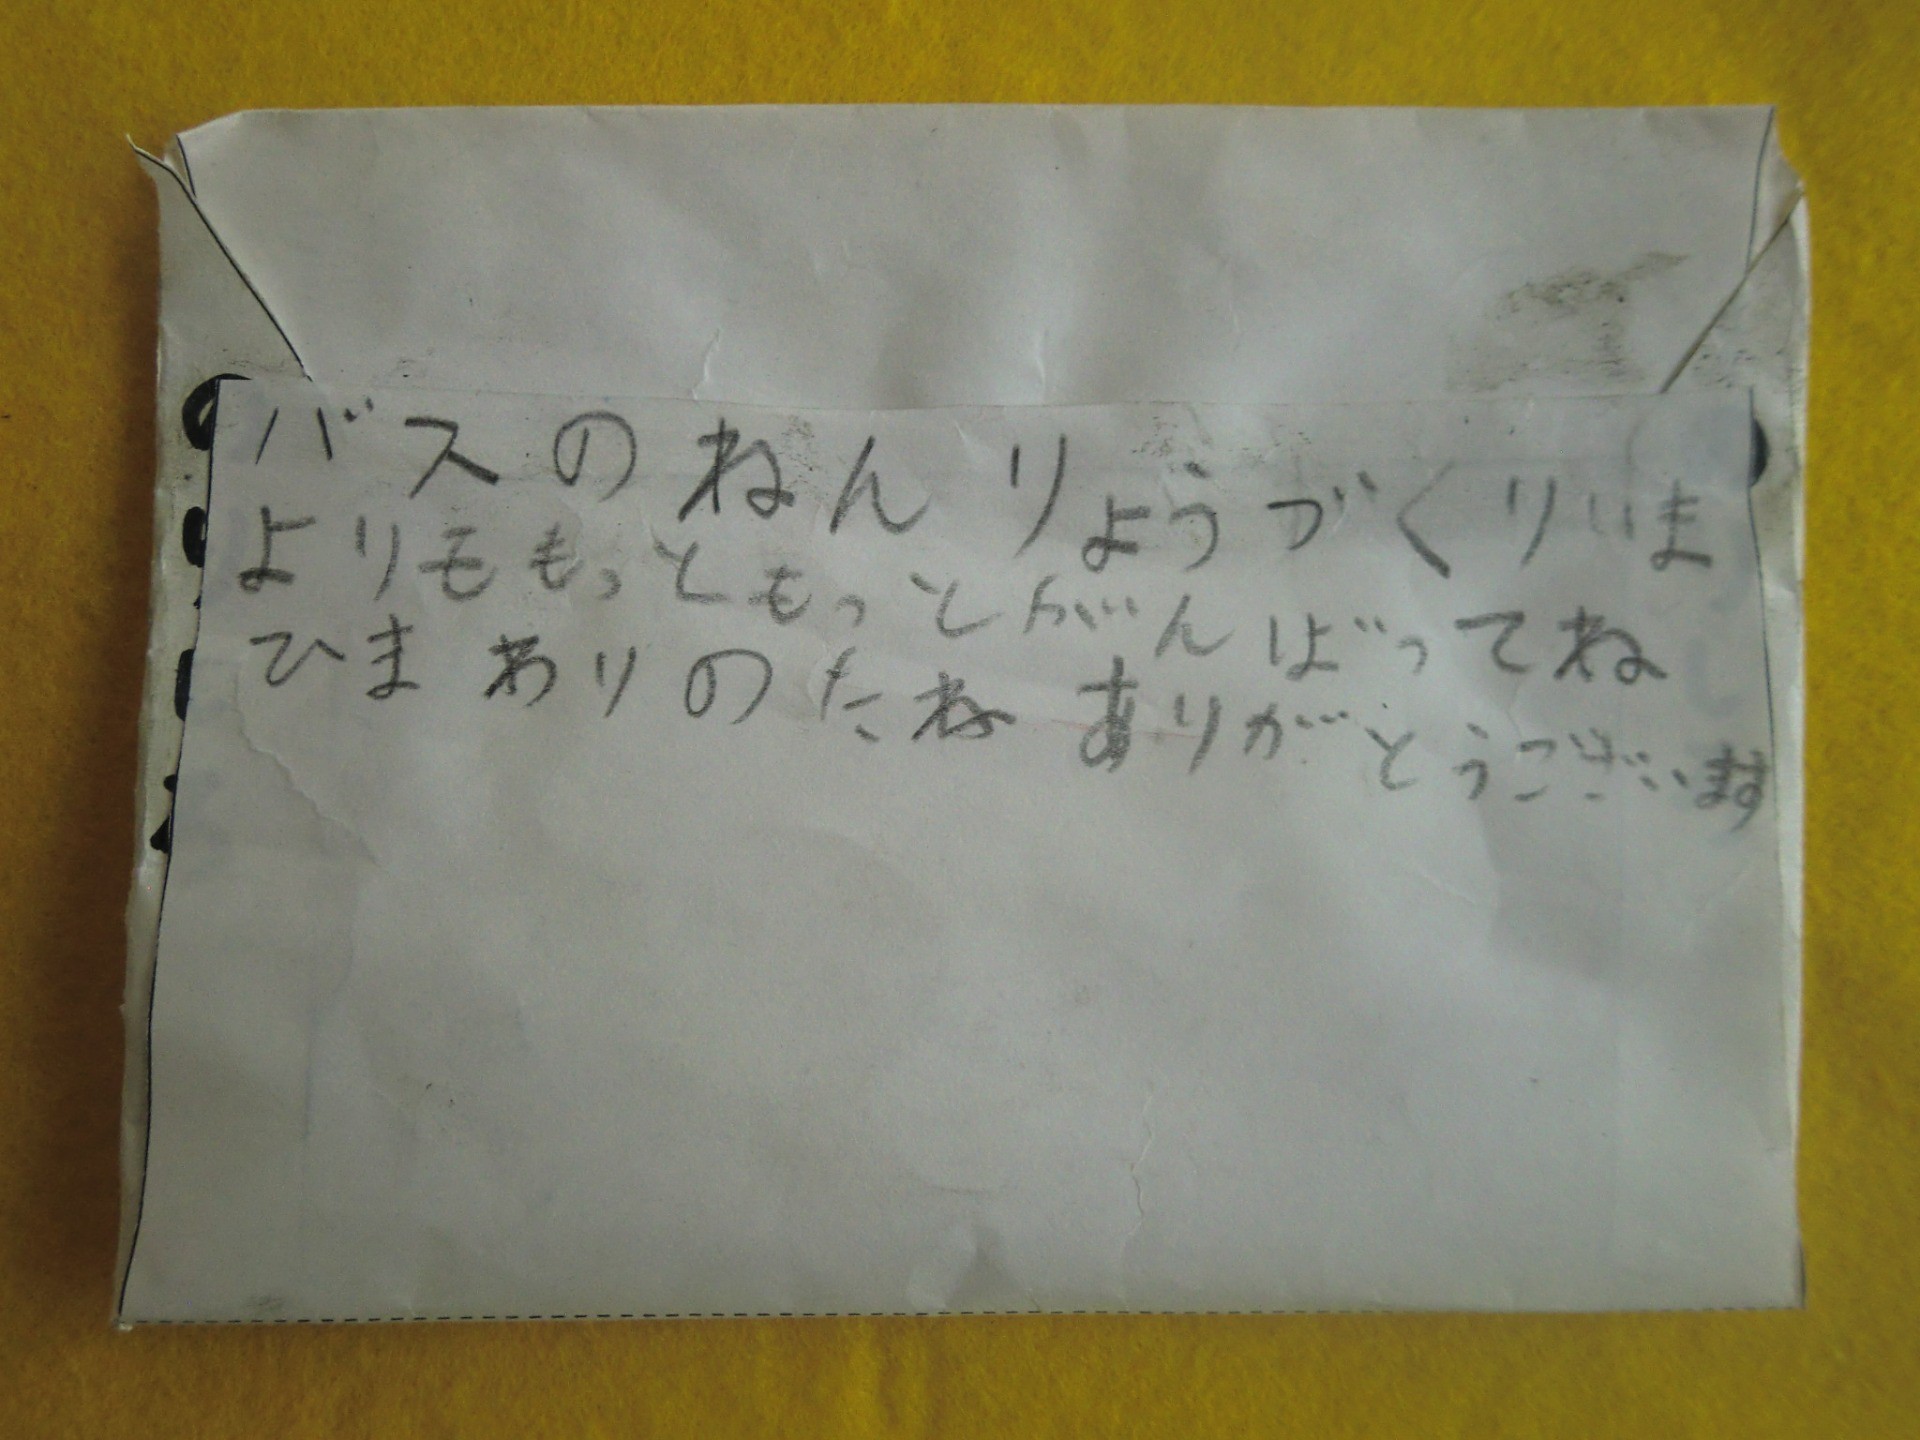 バスのねんりょうづくりいま
よりももっともっとがんばってね
ひまわりのたねありがとうございます